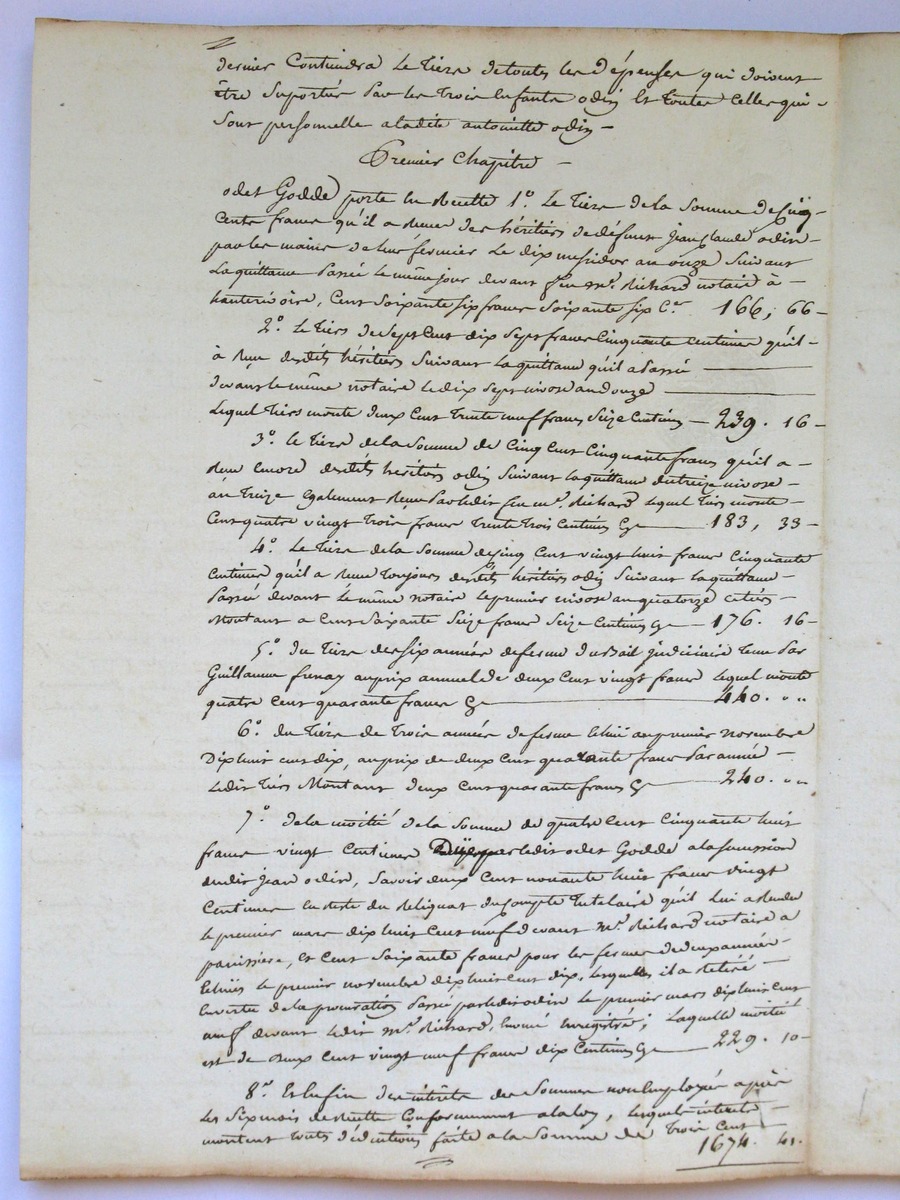 dernier Contiendra Le Tiers de toutes les Dépenses qui doivent
être Suportés Par les Trois Enfants odin Et toutes Celles qui
Sont personnelle a ladite antoinette odin
Premier Chapitre
odet Godde porte En Recette 1° Le Tiers de la Somme de Cinq
Cents francs qu'il a Reçue des héritiers de défunt Jean Claude odin
par les mains de leur fermier Le dix messidor an onze Suivant
La quittance Passée le même jour devant feu me. Richard notaire à
hauterivoire, Cent Soixante Six francs Soixante Six Ces 166, 66
2° Le Tiers de Sept Cent dix Sept francs Cinquante Centimes qu'il
à Reçue desdits héritiers Suivant La quittance qu'il a Passé
devant le même notaire Le dix Sept nivose an douze
Lequel Tiers monte deux Cent Trente neuf francs Seize Centimes 239. 16
3° Le Tiers de la Somme de Cinq Cent Cinquante francs qu'il a
Reçue encore desdits héritiers odin Suivant La quittance du treize nivose
an Treize Egalement Reçue Par ledit feu me. Richard Lequel Tiers monte
Cent quatre vingt Trois francs Trente Trois Centimes Cy 183, 33
4° Le Tiers de la Somme de Cinq Cent vingt huit francs Cinquante
Centimes qu'il a Reçue Toujours desdits héritiers odin Suivant La quittance
Passée devant Le même notaire Le premier nivose an quatorze Ce tiers
Montant a Cent Soixante Seize francs Seize Centimes Cy 176. 16
5° du Tiers des Six années de ferme du Bail judiciaire Tenue Par
Guillaume au prix annuel de deux Cent vingt francs Lequel monte
quatre Cent quarante francs Cy 440. " "
6° du Tiers de Trois années de ferme Echüe au premier novembre
Dix huit cent dix, au prix de deux Cent quarante francs Par année
Ledit Tiers Montant deux Cent quarante francs Cy 240. " "
7° de la moitié de la Somme de quatre Cent Cinquante huit
francs vingt Centimes par ledit odet Godde a la Succession
dudit Jean odin, Savoir deux Cent nonante huit francs vingt
Centimes En Reste du Reliquat du Compte Tutelaire qu'il Lui a Rendu
le premier mars dix huit Cent neuf devant Me. Richard notaire a
panissiere, et Cent Soixante francs pour les fermes de deux années
Echües le premier novembre dix huit cent dix, Lesquelles il a Retiré
En vertu de la procuration Passée par ledit odin Le premier mars dix huit Cent
neuf devant Ledit Me. Richard, Enregistrée; Laquelle moitié
est de deux Cent vingt neuf francs dix Centimes Cy 229. 10
8° Et Enfin des intérêts des Sommes non Employée après
Les Six mois de Recette Conformément a la loy, Lesquels intérêts
montent toutes déductions faite a la Somme de Trois Cent
1674. 41.